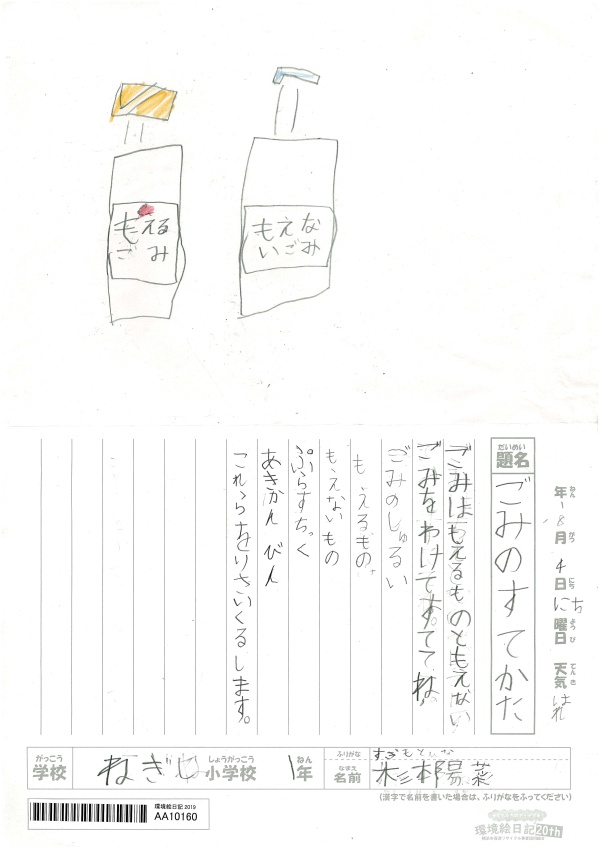 もえる
ごみ
もえな
いごみ
だいめい
題名
ごみのすてかた
年 8月 4日 にち曜日 天気 はれ
ねん がつ にち ようび てんき
ごみはもえるものともえない
ごみをわけてすててね。
ごみのしゅるい
もえるもの、
もえないもの
ぷらすちっく
あきかん びん
これらをりさいくるします。
がっこう
学校
ねぎし
しょうがっこう
小学校
1
ねん
年
ふりがな
なまえ
名前
杉本陽菜
(漢字で名前を書いた場合は、ふりがなをふってください)
環境絵日記 2019
AA10160
環境絵日記20th